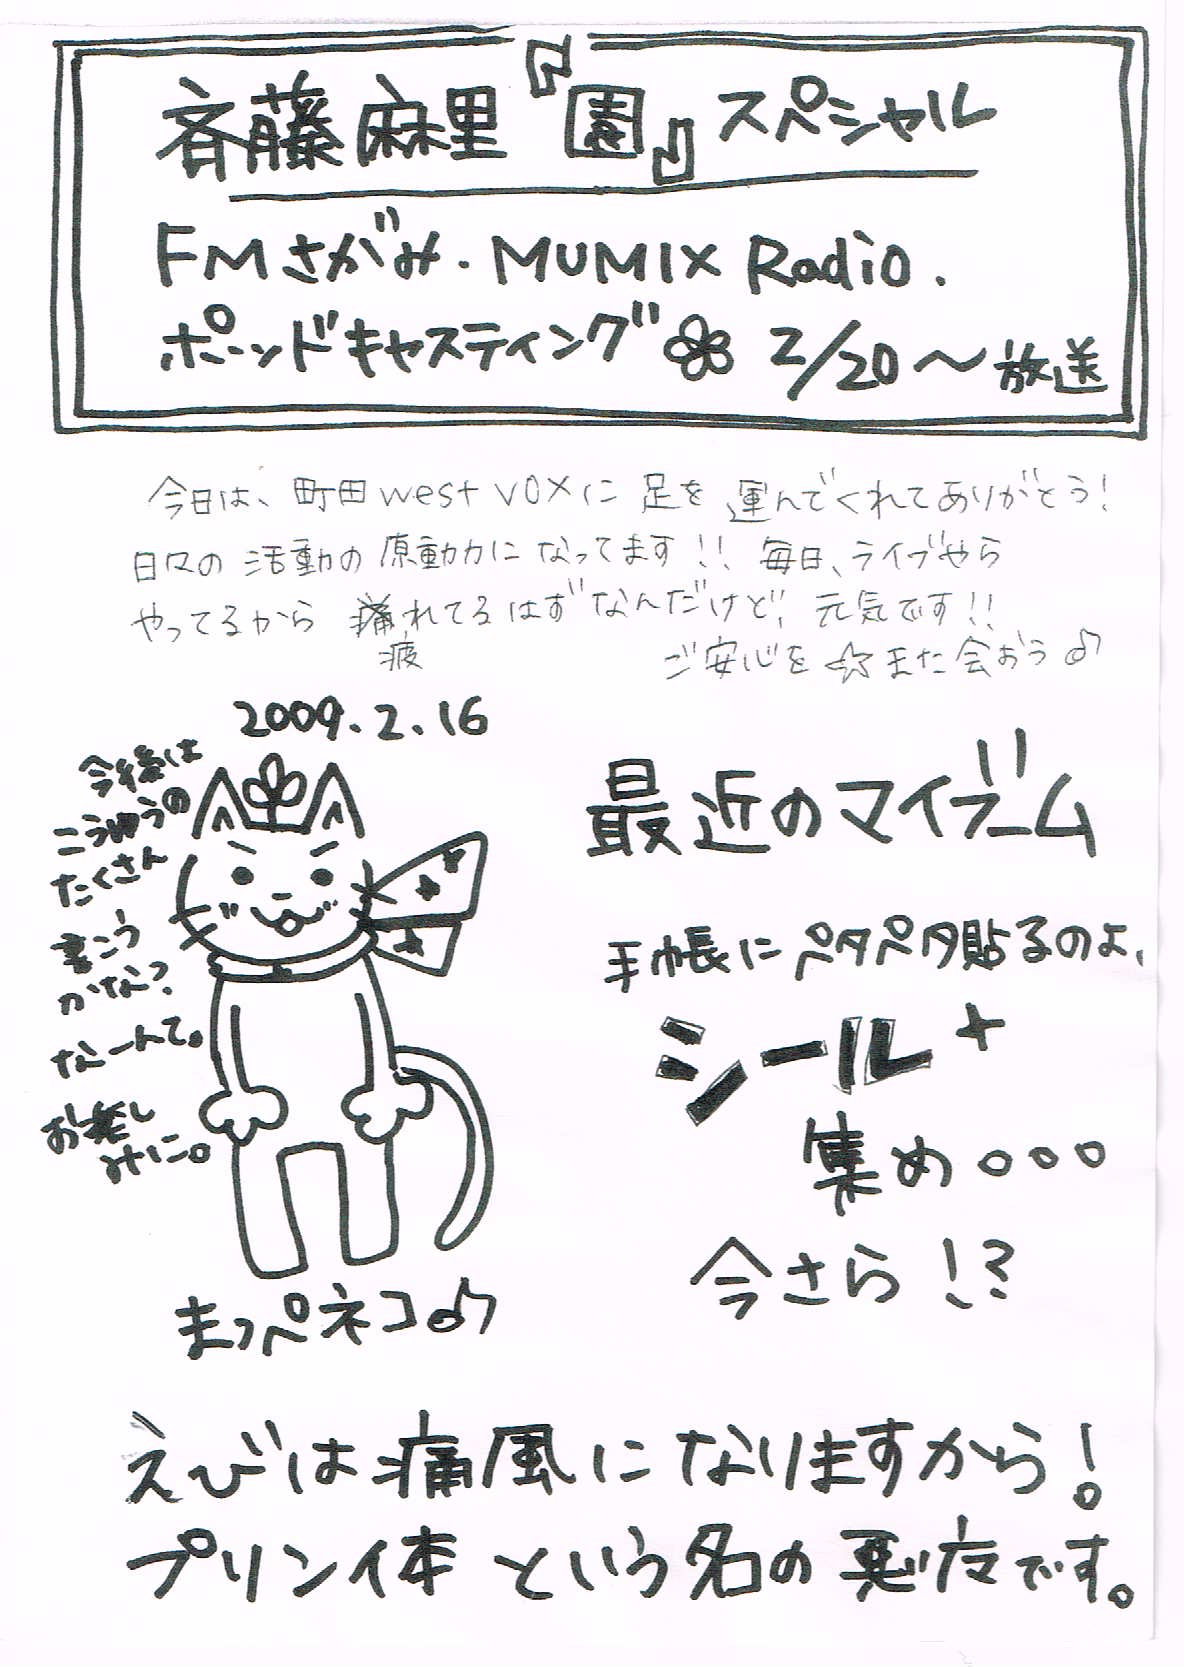 斉藤麻里『園』スペシャル
FMさがみ.MUMIX Radio.
ポッドキャスティング 2/20〜放送
今日は、町田west voxに足を運んでくれてありがとう!
日々の活動の原動力になってます!! 毎日、ライブやら
やってるから れてるはずなんだけど、元気です!!
疲
ご安心を☆また会おう♪
2009.2.16
今後は
こうゆうの
たくさん
書こう
かな?
なーんて。
お楽し
みに。
まっぺネコ♪
最近のマイブーム
手帳にペタペタ貼るのよ、
シール
集め。。。
今さら!?
えびは痛風になりますから!
プリン体という名の です。